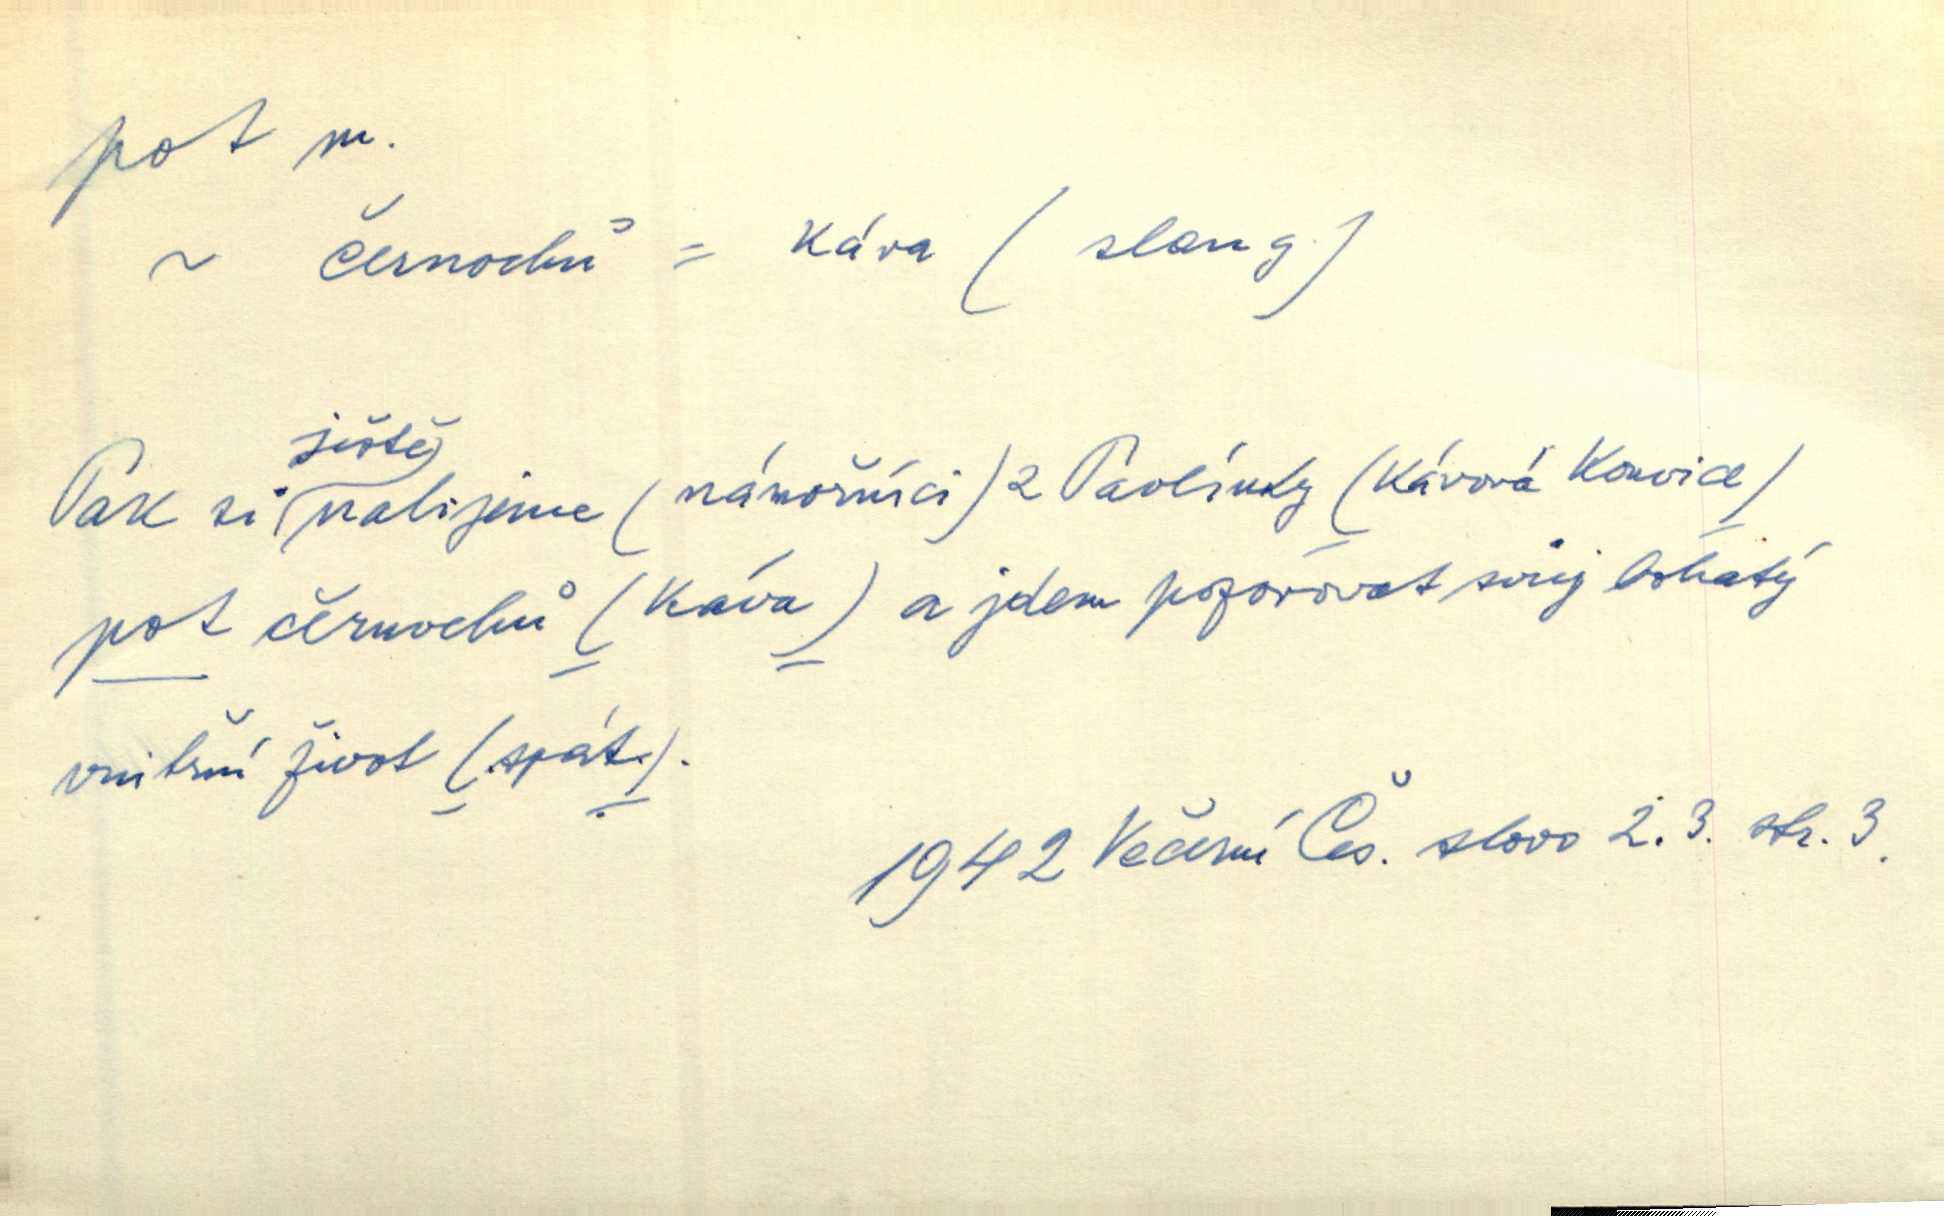 pot m.
~ černochů = káva (slang.)
ještě
Pak si nalijeme (námořníci) z Pavlínky (kávová konvice)
pot černochů (káva) a jdem pozorovat svůj bohatý
vnitřní život (spát).
1942 Večerní Čes. slovo 2.3. str. 3.